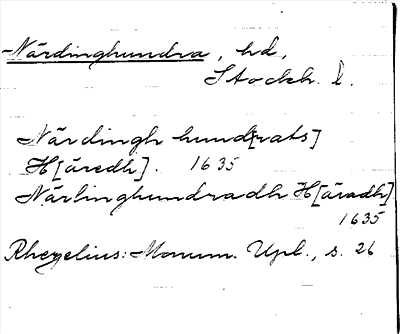 Närdinghundra, hd,
Stockh. l.
Närdingh hund[rats]
H[äredh]. 1635
Närlinghundradh H[äradh]
1635
Rhezelius: Monum. Upl., s. 26